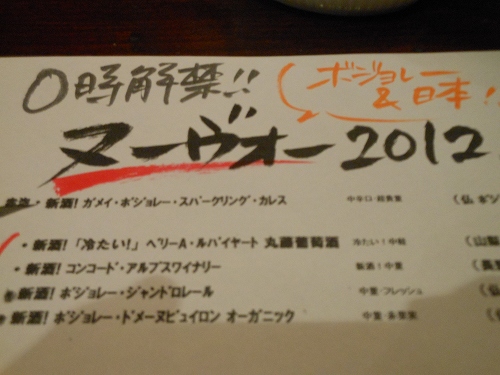 0時解禁!!
ボジョレー
&日本!
ヌーヴォー2012
・新酒! ガメイ・ボジョレー・スパークリング・カレス 中辛口・超貴重 (仏 ボジ
・新酒!「冷たい!」ベリーA・ルバイヤート 丸藤葡萄酒 冷たい!中軽 (山梨
・新酒! コンコード・アルプスワイナリー 新酒!中重 (長野
新酒! ボジョレー・ジャンドロレール 中重・フレッシュ (仏
新酒! ボジョレー・ドメーヌビュイロン オーガニック 中重・多果実 (仏